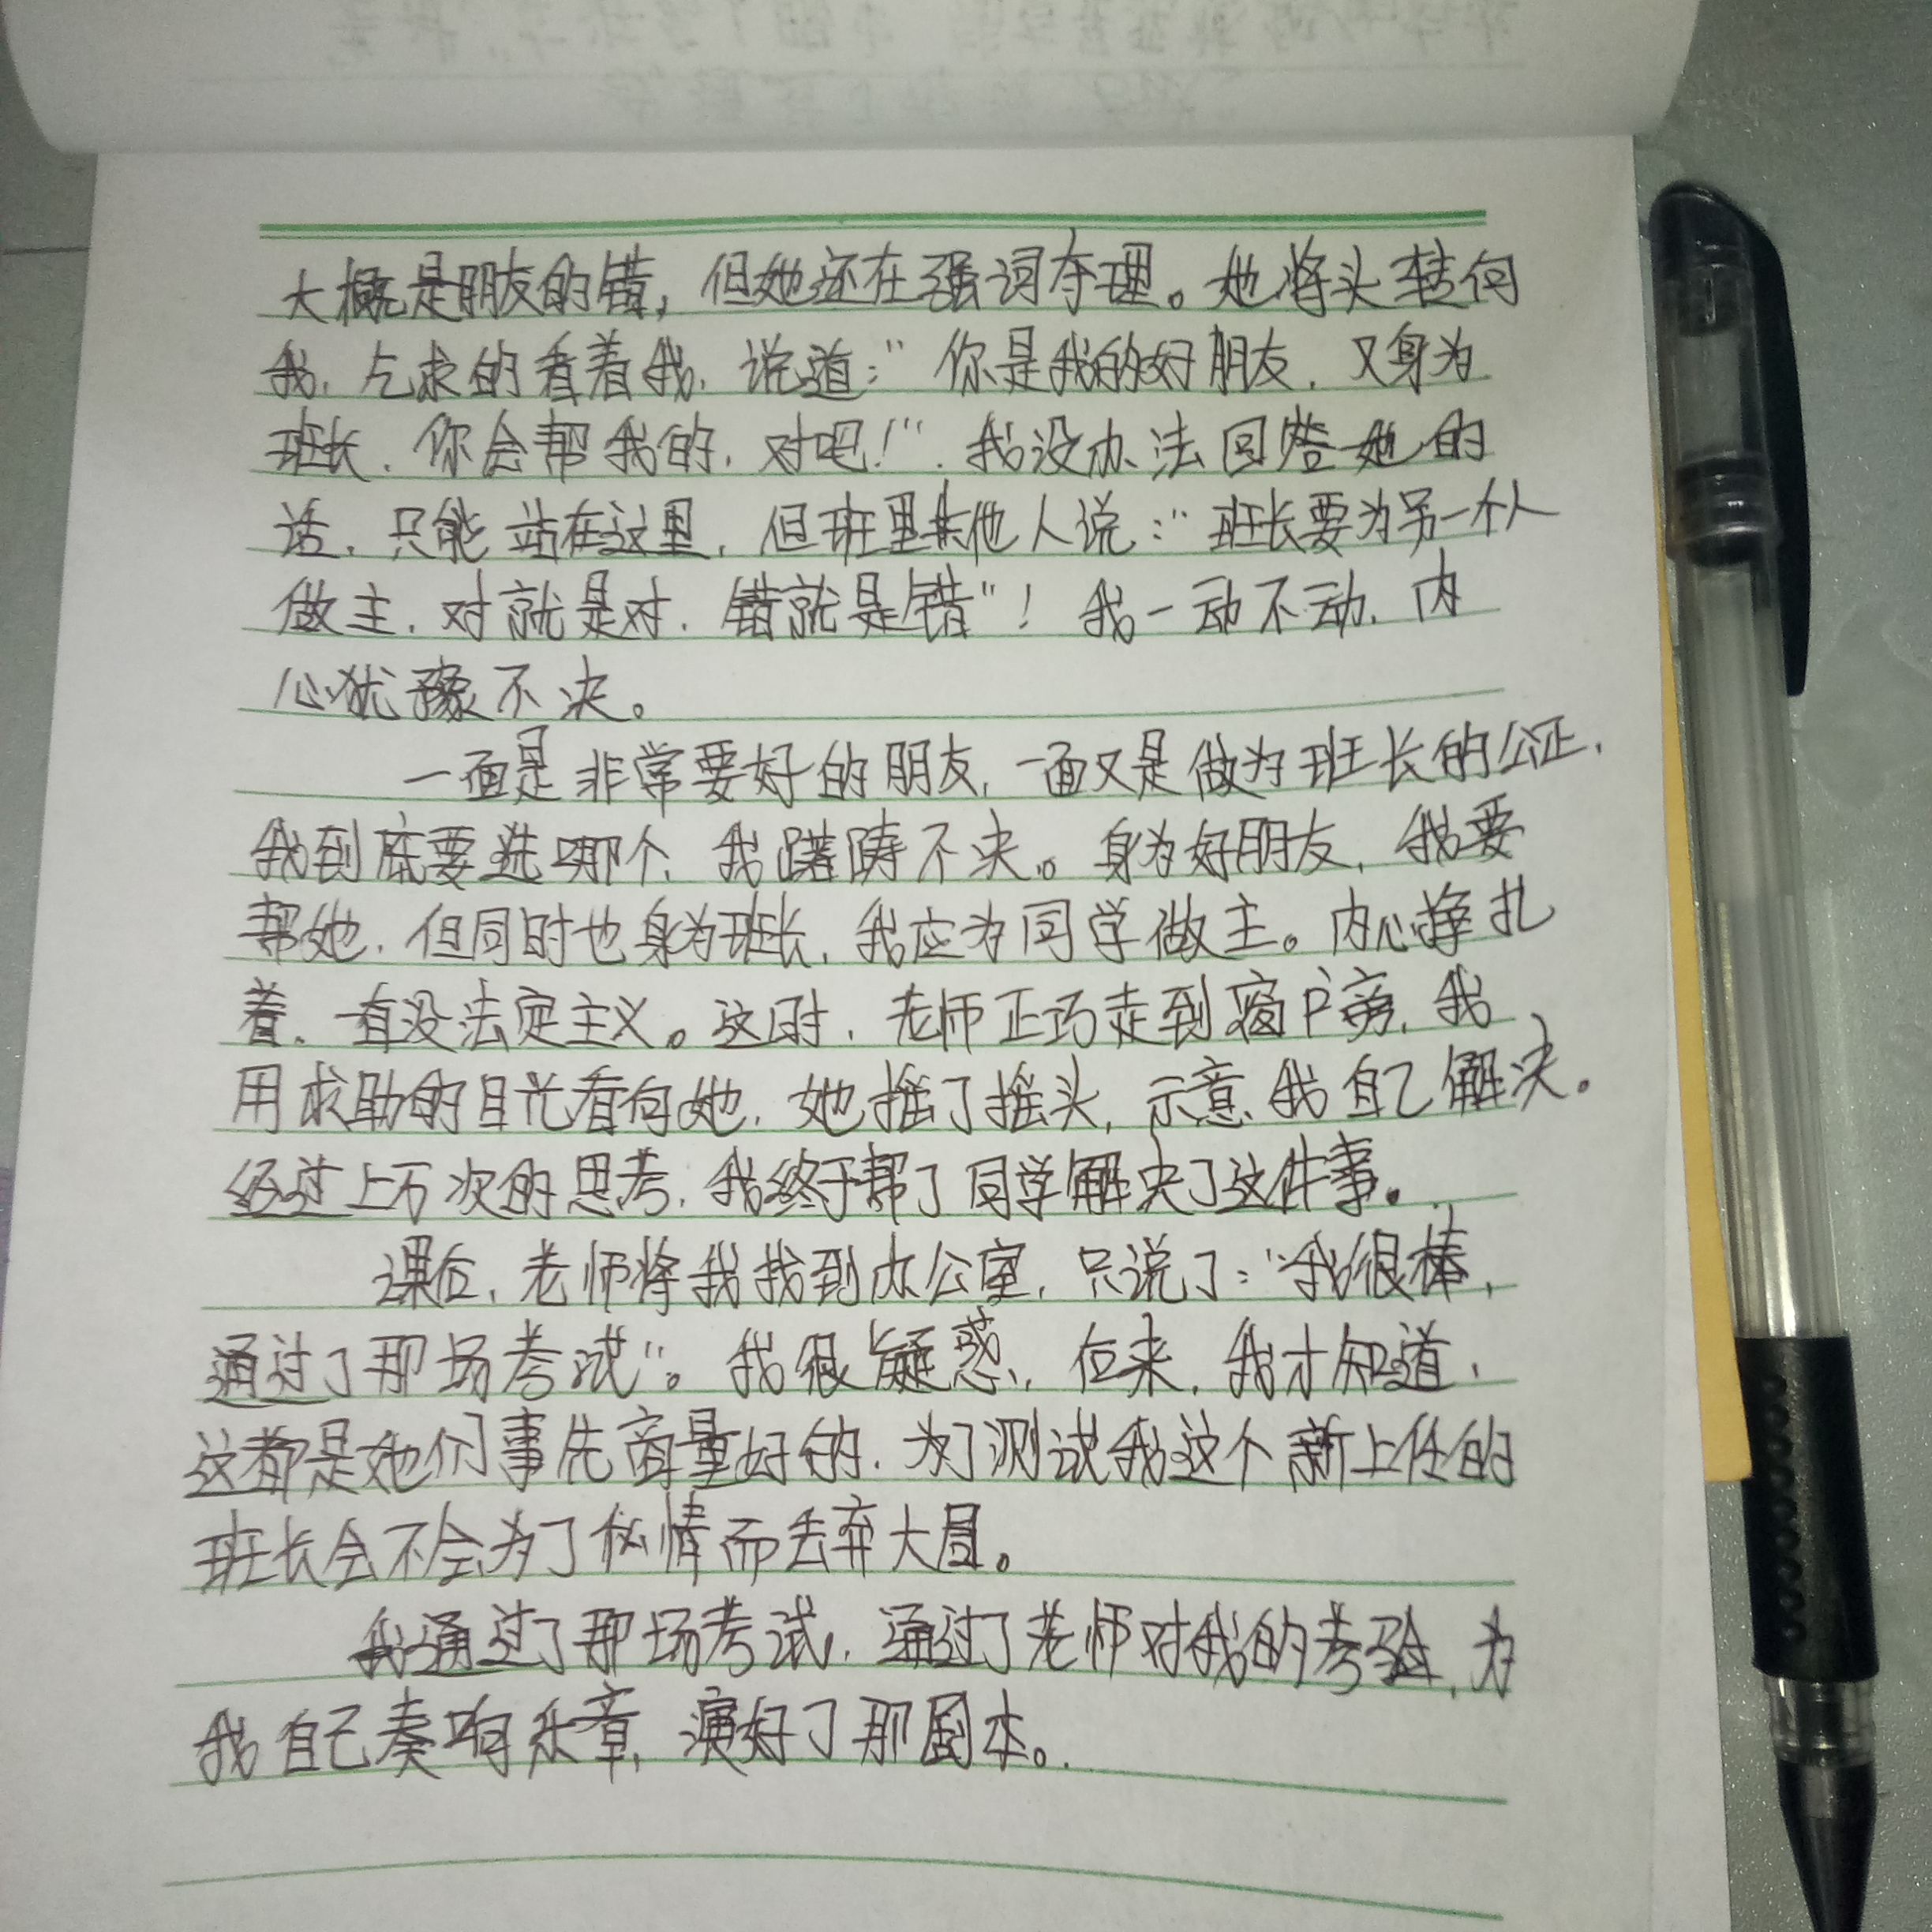 大概是朋友的错，但她还在强词夺理。她将头转向
我，乞求的看着我，说道：“你是我的好朋友，又身为
班长，你会帮我的，对吧！”我没办法回答她的
话，只能站在这里，但班里其他人说：“班长要为另一个人
做主，对就是对，错就是错”！我一动不动，内
心犹豫不决。
一面是非常要好的朋友，一面又是做为班长的公正，
我到底要选哪个，我踌躇不决。身为好朋友，我要
帮她，但同时也身为班长，我应为同学做主。内心挣扎
着，一直没法定主义。这时，老师正巧走到窗户旁，我
用求助的目光看向她，她摇了摇头，示意我自己解决。
经过上万次的思考，我终于帮了同学解决了这件事。
课后，老师将我找到办公室，只说了：“我很棒，
通过了那场考试”。我很疑惑，后来，我才知道，
这都是她们事先商量好的，为了测试我这个新上任的
班长会不会为了私情而丢弃大局。
我通过了那场考试，通过了老师对我的考验，为
我自己奏响乐章，演好了那剧本。